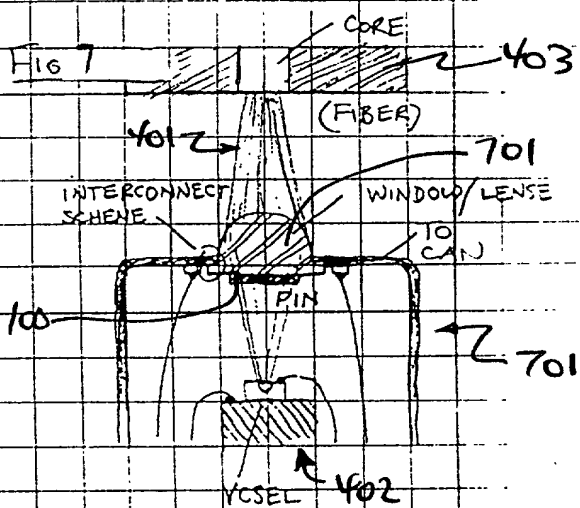 FIG 7
CORE
403
(FIBER)
401
701
INTERCONNECT
SCHENE
WINDOW/LENSE
TO
CAN
100
PIN
701
VCSEL
402